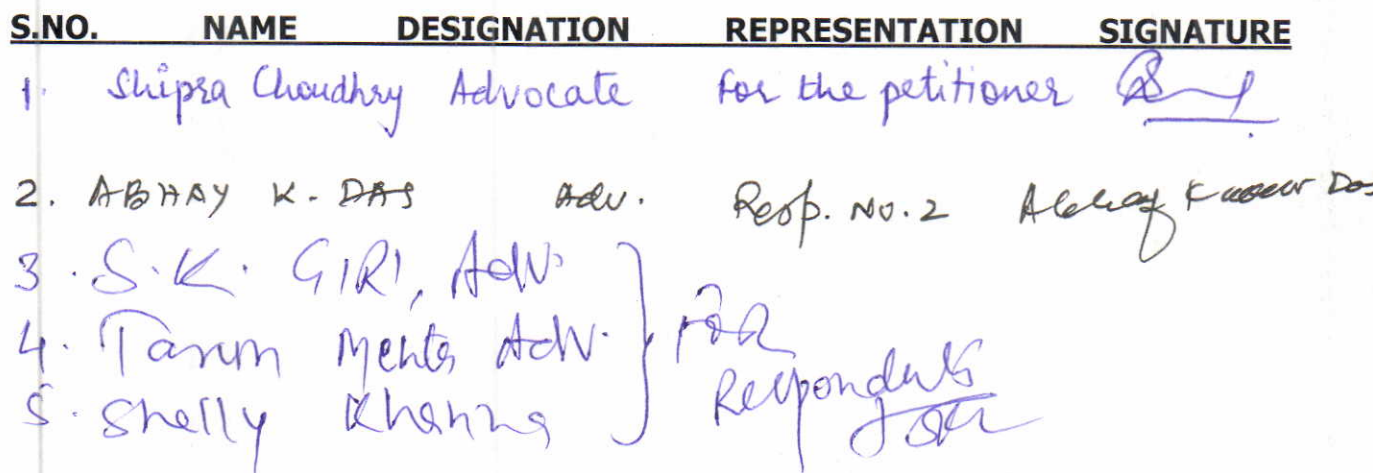 S.NO. NAME DESIGNATION REPRESENTATION SIGNATURE
1. Shipra Choudhry Advocate for the petitioner
2. ABHAY K. DAS Adv. Resp. No. 2 Abhay Kumar Das
3. S.K. GIRI, Adv.
4. Tarun Mehta Adv. For
5. Shelly Khanna Respondents